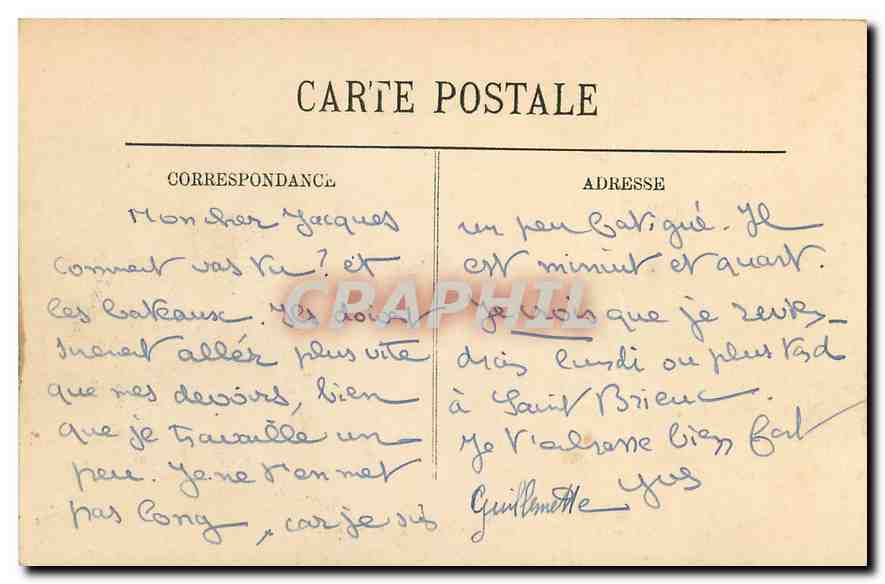 CARTE POSTALE
CORRESPONDANCE
Mon cher Jacques
Comment vas tu ? et
les bateaux. Ils doivent
surement aller plus vite
que mes devoirs, bien
que je travaille un
peu. Je ne t'en met
pas long, car je suis
ADRESSE
un peu fatigué. Il
est minuit et quart.
Je crois que je revien-
drais lundi ou plus tard
à Saint Brieuc.
Je t'adresse bien fort
Yves
Guillemette
CPAPHIL